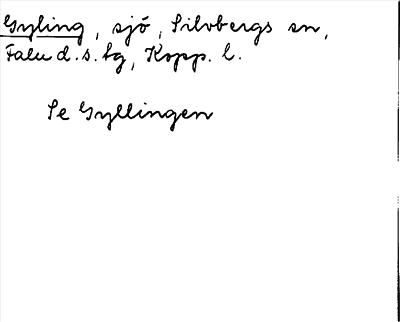 Gyling, sjö, Silvbergs sn,
Falu d. s. tg, Kopp. l.
Se Gyllingen